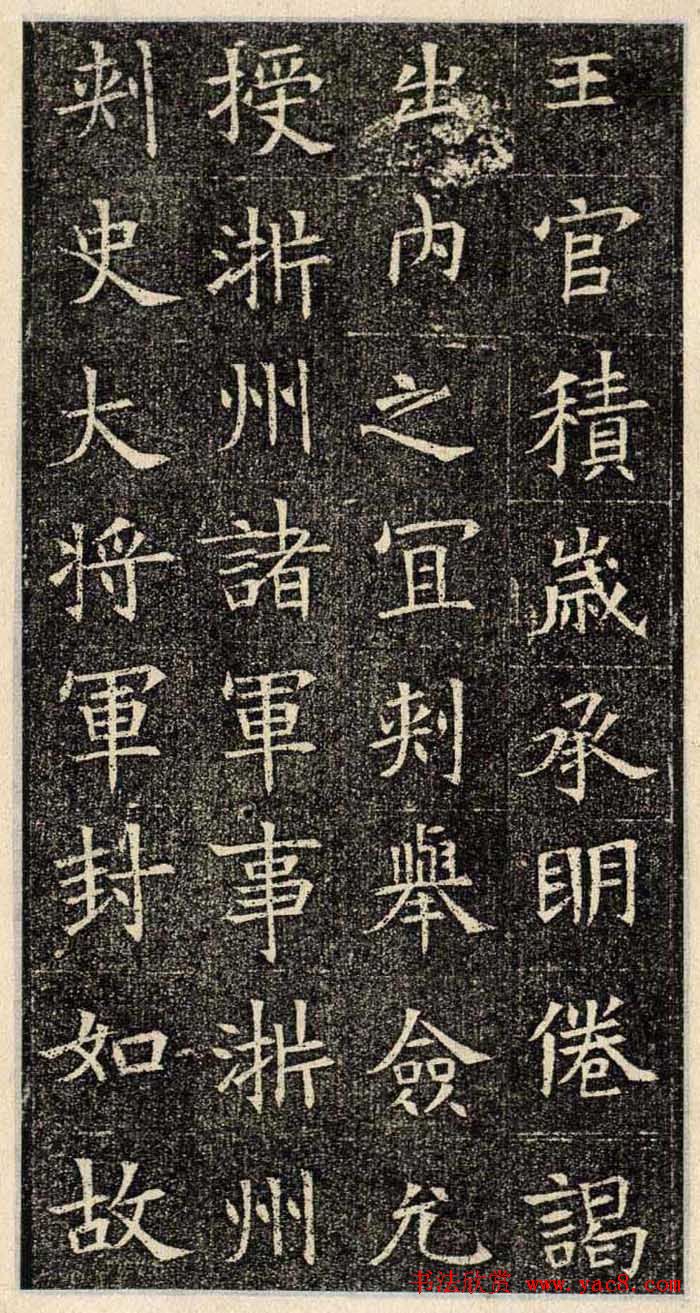 王官積歲承眀倦謁
出内之宜刾舉僉允
授淅州諸軍事淅州
刾史大将軍封如故
书法欣赏 www.yac8.com